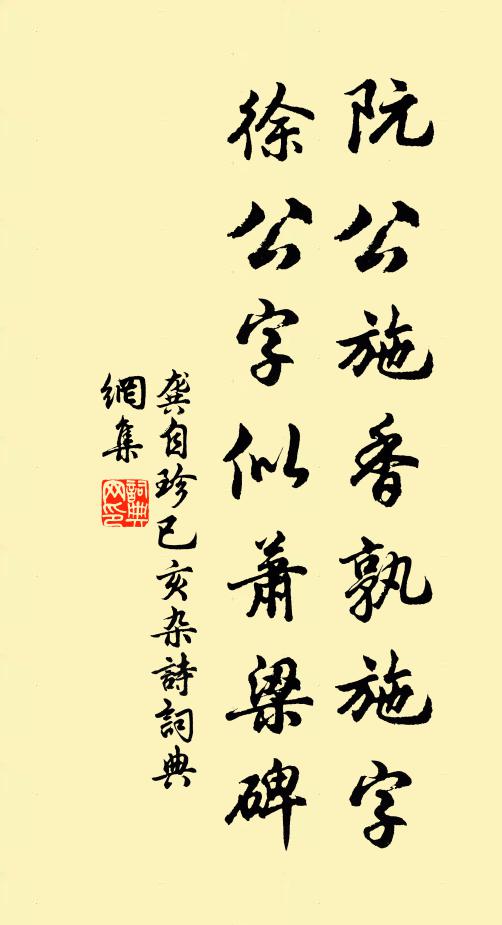 阮公施香孰施字
徐公字似蕭梁碑
龚自珍己亥杂詩詞典
網集
詞典
网印